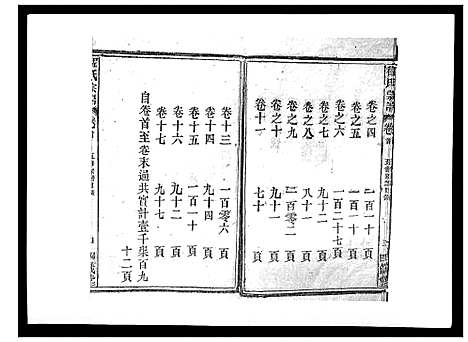 卷之四 一百一十 頁
卷之五 一百一十 頁
卷之六 一百二十七 頁
卷之七 九十二 頁
卷之八 八十 頁
卷之九 一百零二 頁
卷之十 九十一 頁
卷十一 七十 頁
卷十三 一百零六 頁
卷十四 九十四 頁
卷十五 一百一十 頁
卷十六 九十二 頁
卷十七 九十七 頁
自卷首至卷末過共實計壹千柒百九
十二頁
氏宗譜